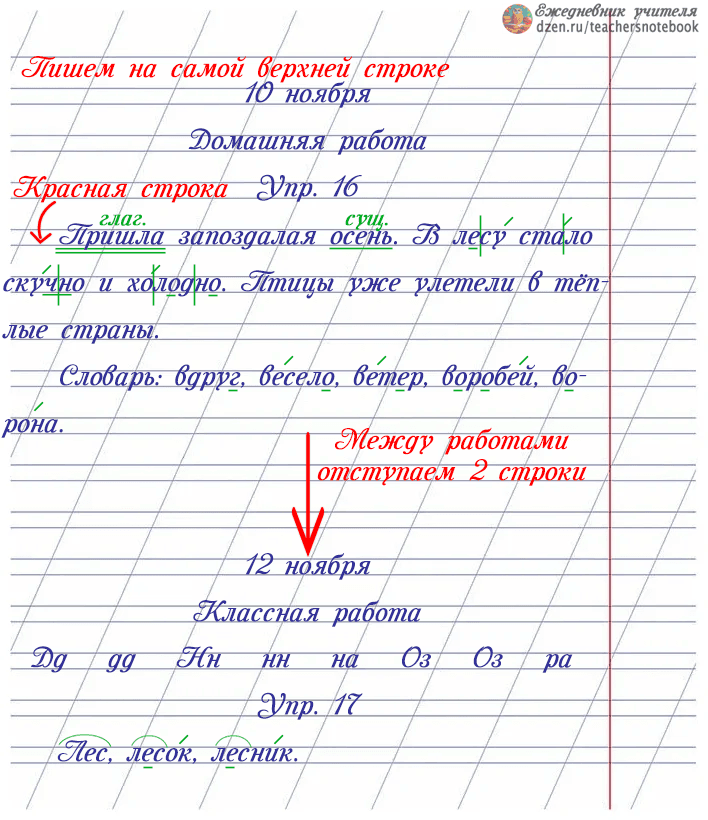 Ежедневник учителя
dzen.ru/teachersnotebook
Пишем на самой верхней строке
10 ноября
Домашняя работа
Красная строка Упр. 16
глаг. сущ.
Пришла запоздалая осень. В лесу стало
скучно и холодно. Птицы уже улетели в тёп-
лые страны.
Словарь: вдруг, весело, ветер, воробей, во-
рона.
Между работами
отступаем 2 строки
12 ноября
Классная работа
Дд дд Нн нн на Оз Оз ра
Упр. 17
Лес, лесок, лесник.